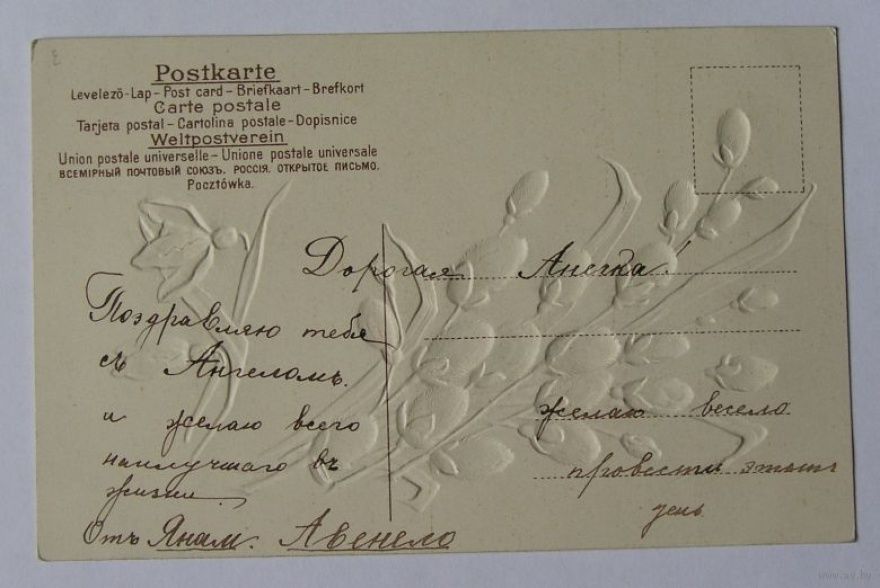 Postkarte
Levelező-Lap - Post card - Briefkaart - Brefkort
Carte postale
Tarjeta postal - Cartolina postale - Dopisnice
Weltpostverein
Union postale universelle - Unione postale universale
ВСЕМІРНЫЙ ПОЧТОВЫЙ СОЮЗЪ. РОССІЯ. ОТКРЫТОЕ ПИСЬМО.
Pocztówka.
Дорогая Анечка!
Поздравляю тебя
съ Ангеломъ.
и желаю всего
наилучшаго въ
жизни.
Отъ
желаю весело
провести этотъ
день